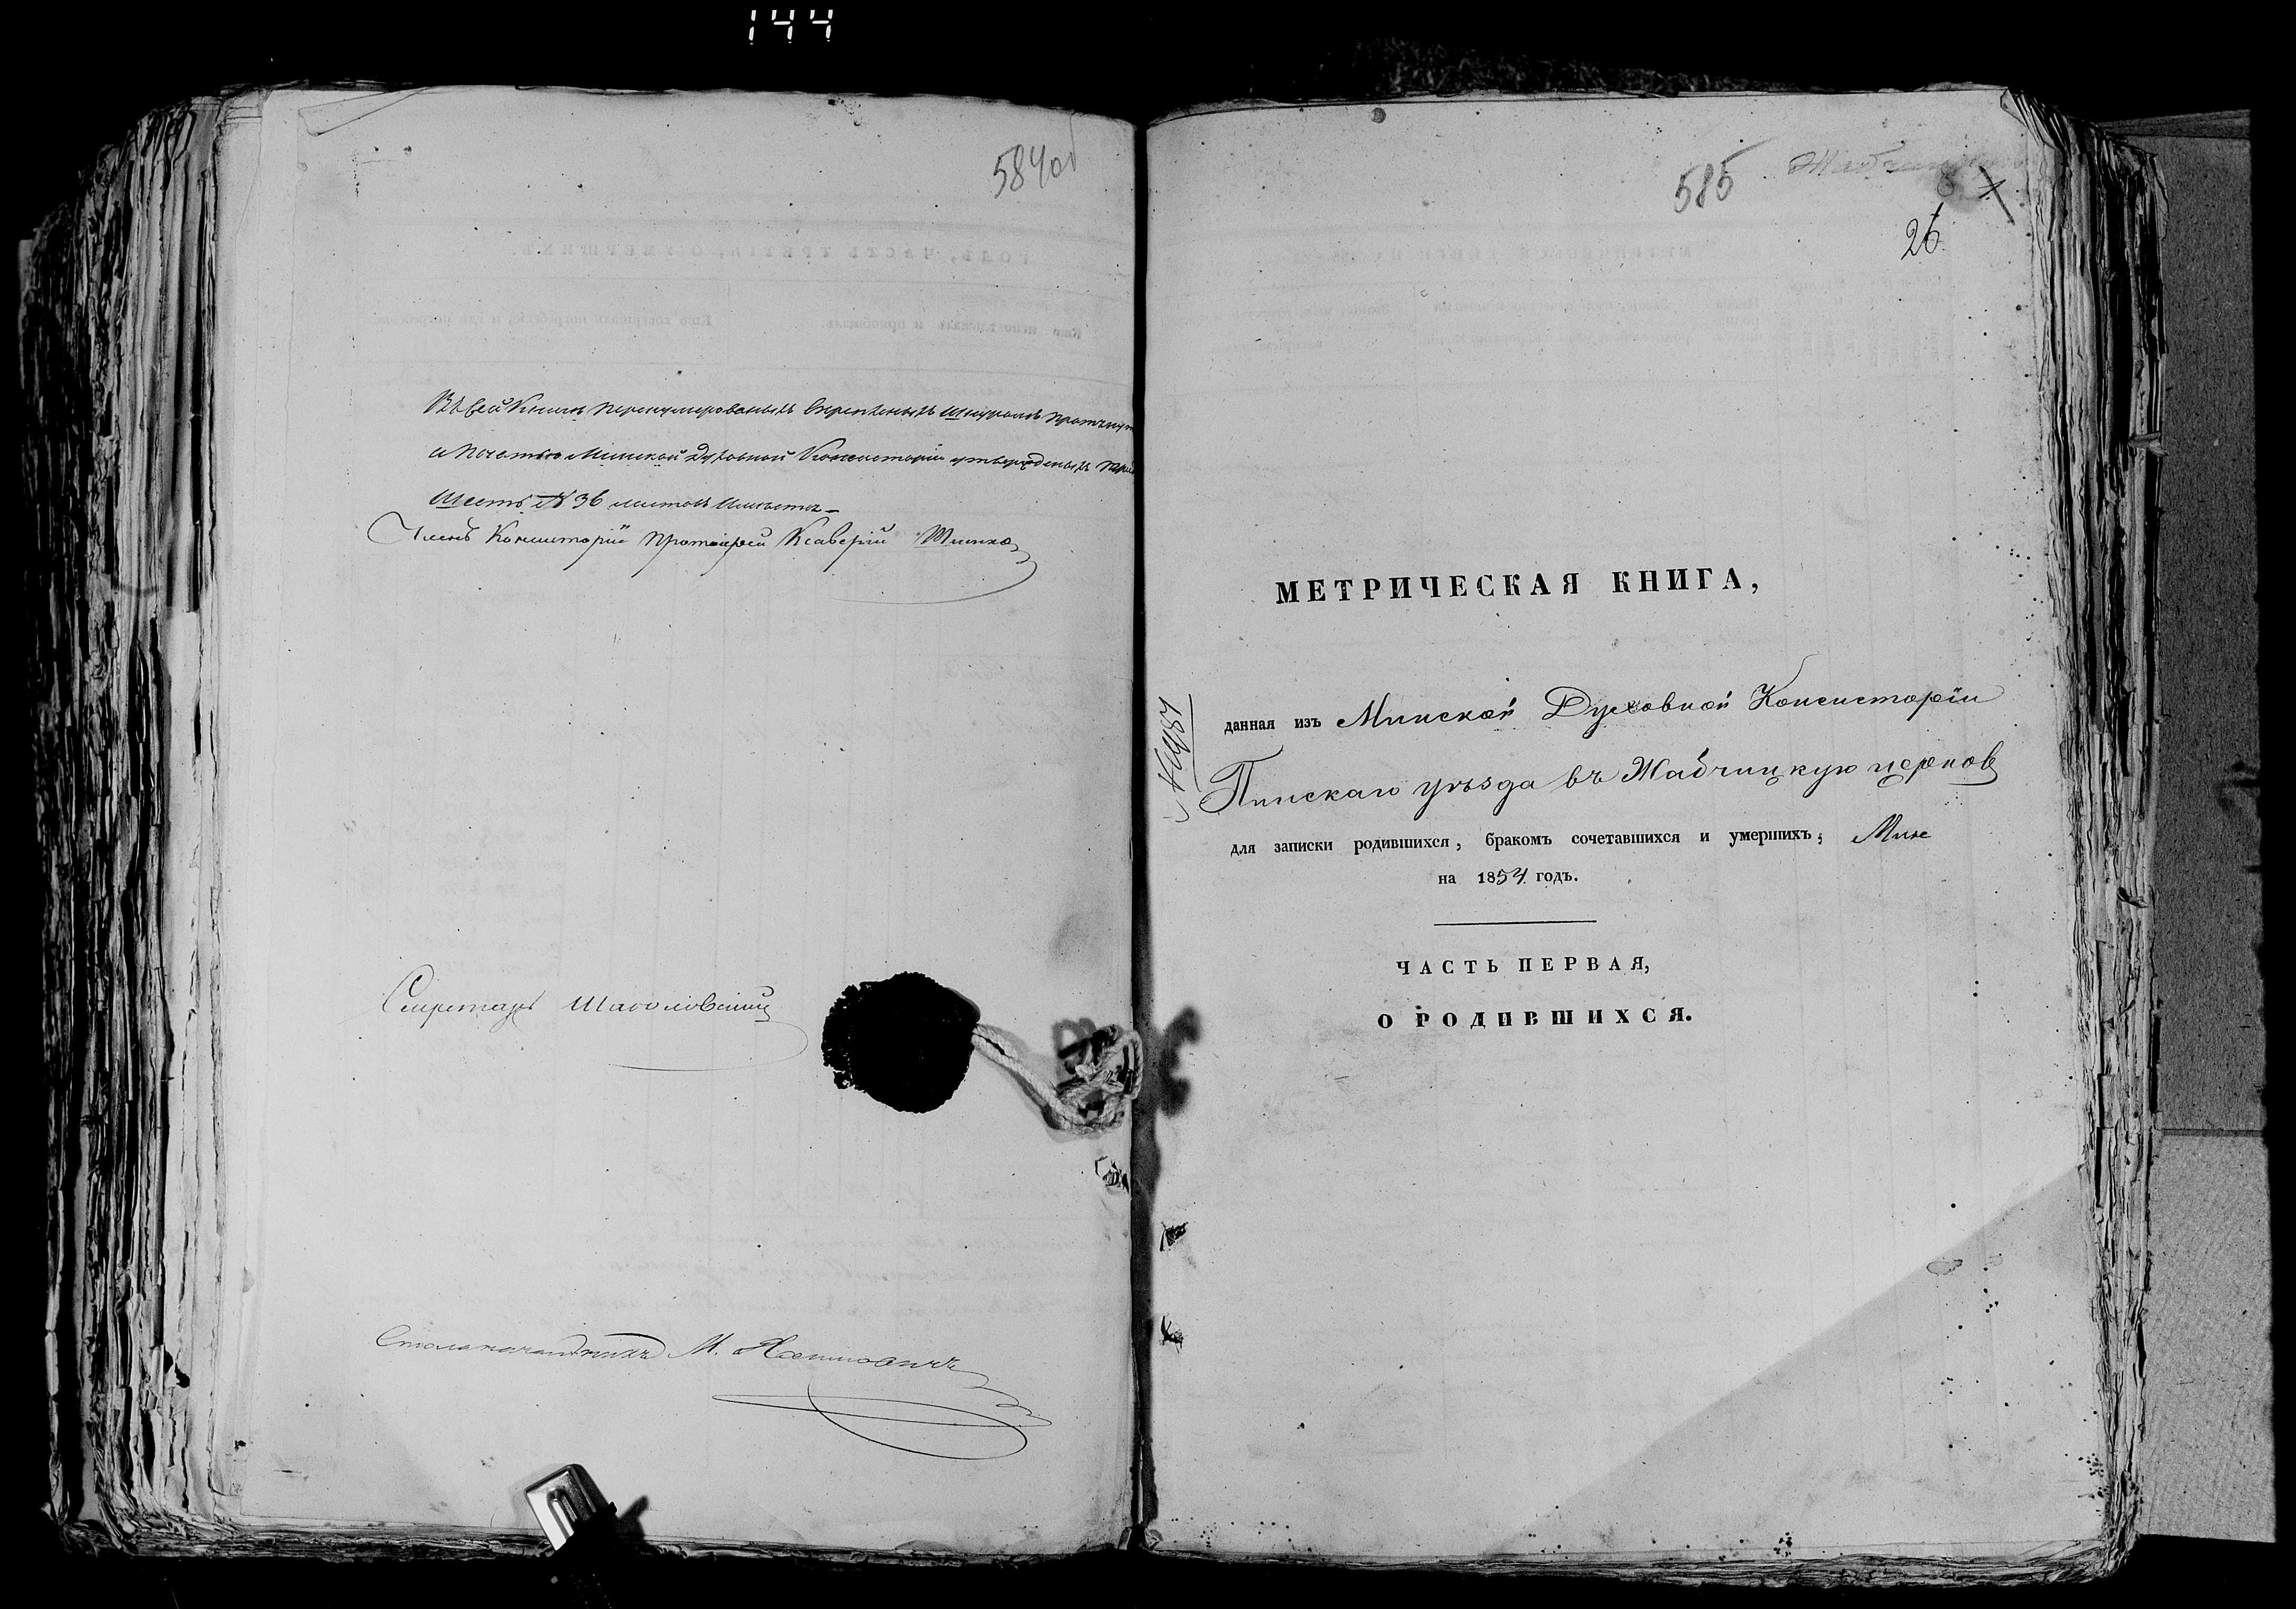 144
584об
Въ сей Книгѣ перенумерованыхъ скрепленыхъ Шнуромъ
и Печатью Минской Духовной Консисторіи утвержденыхъ
Шесть № 36 листовъ Имѣется
Членъ Консисторіи Протоіерей Ксаверій
Секретарь
Столоначальникъ М.
585
26
МЕТРИЧЕСКАЯ КНИГА,
данная изъ Минской Духовной Консисторіи
Пинскаго уѣзда въ Жабчицкую церковь
для записки родившихся, бракомъ сочетавшихся и умершихъ,
на 1854 годъ.
ЧАСТЬ ПЕРВАЯ,
О РОДИВШИХСЯ.